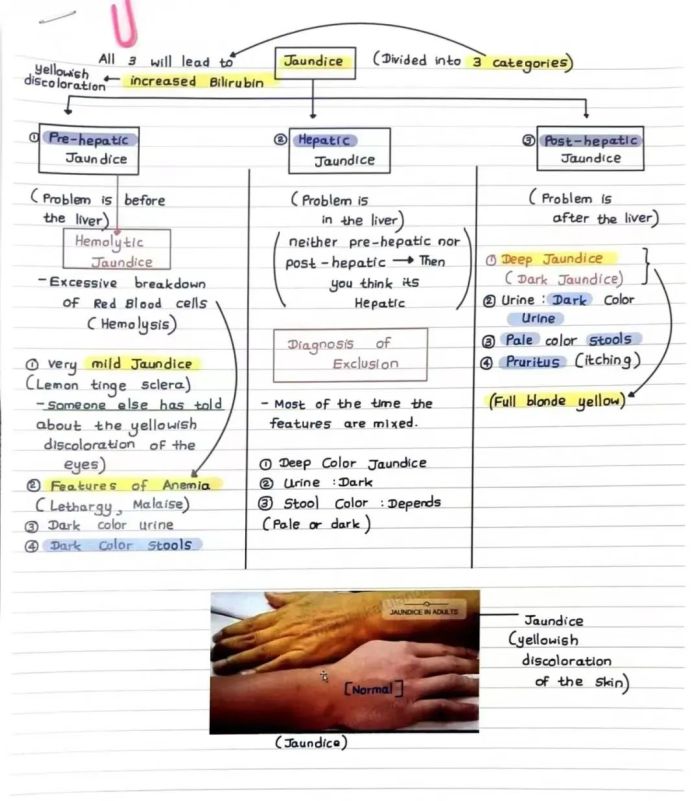 All 3 will lead to
Jaundice
(Divided into 3 categories)
yellowish
discoloration
increased Bilirubin
① Pre-hepatic
Jaundice
(Problem is before
the liver)
Hemolytic
Jaundice
- Excessive breakdown
of Red Blood cells
(Hemolysis)
① very mild Jaundice
(Lemon tinge sclera)
- Someone else has told
about the yellowish
discoloration of the
eyes)
② Features of Anemia
(Lethargy, Malaise)
③ Dark color urine
④ Dark Color Stools
② Hepatic
Jaundice
(Problem is
in the liver)
(neither pre-hepatic nor
post-hepatic → Then
you think its
Hepatic)
Diagnosis of
Exclusion
- Most of the time the
features are mixed.
① Deep Color Jaundice
② Urine : Dark
③ Stool Color : Depends
(Pale or dark)
③ Post-hepatic
Jaundice
(Problem is
after the liver)
① Deep Jaundice
(Dark Jaundice)
② Urine : Dark Color
Urine
③ Pale color stools
④ Pruritus (itching)
(Full blonde yellow)
JAUNDICE IN ADULTS
[Normal]
Jaundice
(yellowish
discoloration
of the skin)
(Jaundice)